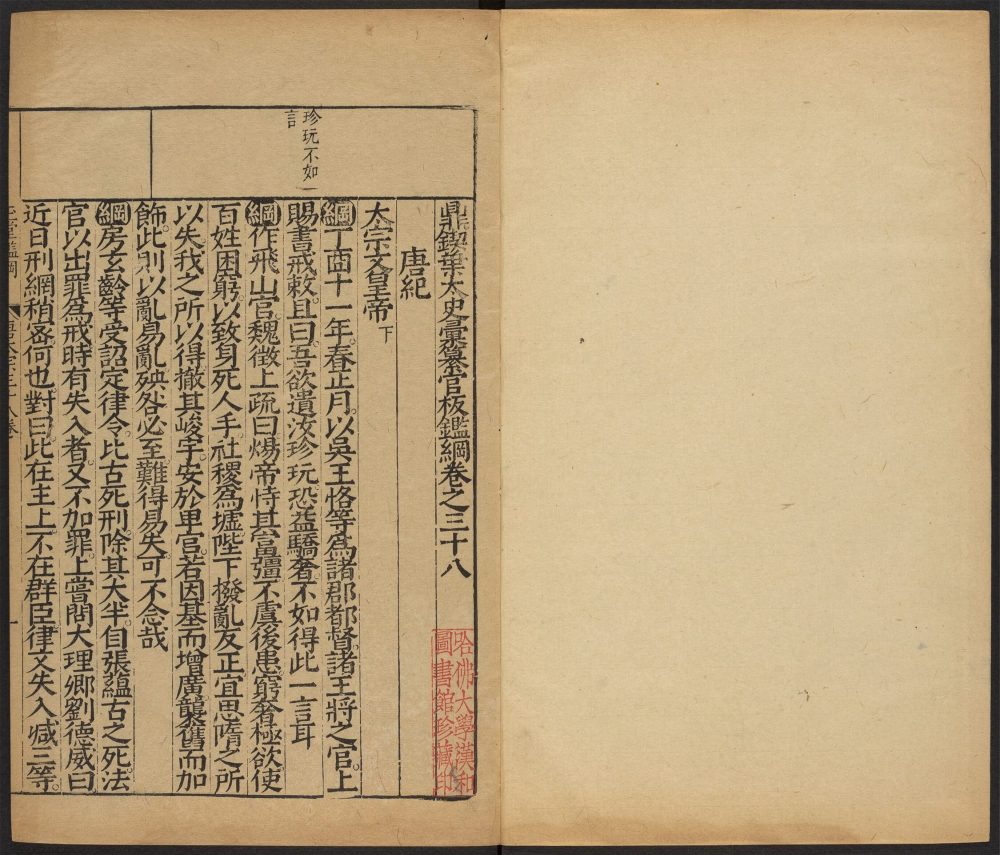 鼎鍥葉太史彙纂官板鑑綱卷之三十八
唐紀
太宗文皇帝下
綱丁酉十一年春正月以吳王恪等爲諸郡都督諸王將之官上
賜書戒敕且曰吾欲遺汝珍玩恐益驕奢不如得此一言耳
綱作飛山宮魏徵上疏曰煬帝恃其富彊不虞後患窮奢極欲使
百姓困窮以致身死人手社稷爲墟陛下撥亂反正宜思隋之所
以失我之所以得撤其峻宇安於卑宮若因基而增廣襲舊而加
飾此則以亂易亂殃咎必至難得易失可不念哉
綱房玄齡等受詔定律令比古死刑除其大半自張蘊古之死法
官以出罪爲戒時有失入者又不加罪上嘗問大理卿劉德威曰
近日刑網稍密何也對曰此在主上不在群臣律文失入減三等
珍玩不如一
言
哈佛大學漢和
圖書館珍藏印